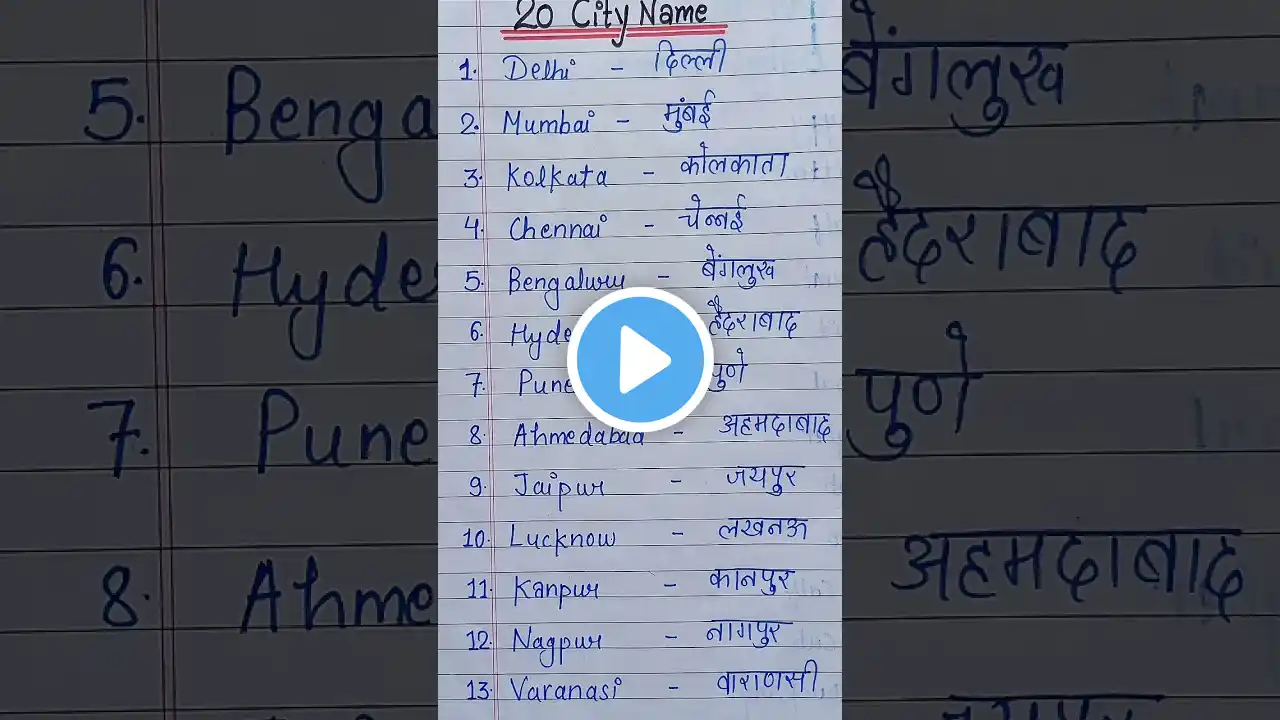 20 City Name
1. Delhi - दिल्ली
2. Mumbai - मुंबई
3. Kolkata - कोलकाता
4. Chennai - चेन्नई
5. Bengaluru - बेंगलुरु
6. Hyde हैदराबाद
7. Pune पुणे
8. Ahmedabad - अहमदाबाद
9. Jaipur - जयपुर
10. Lucknow - लखनऊ
11. Kanpur - कानपुर
12. Nagpur - नागपुर
13. Varanasi - वाराणसी